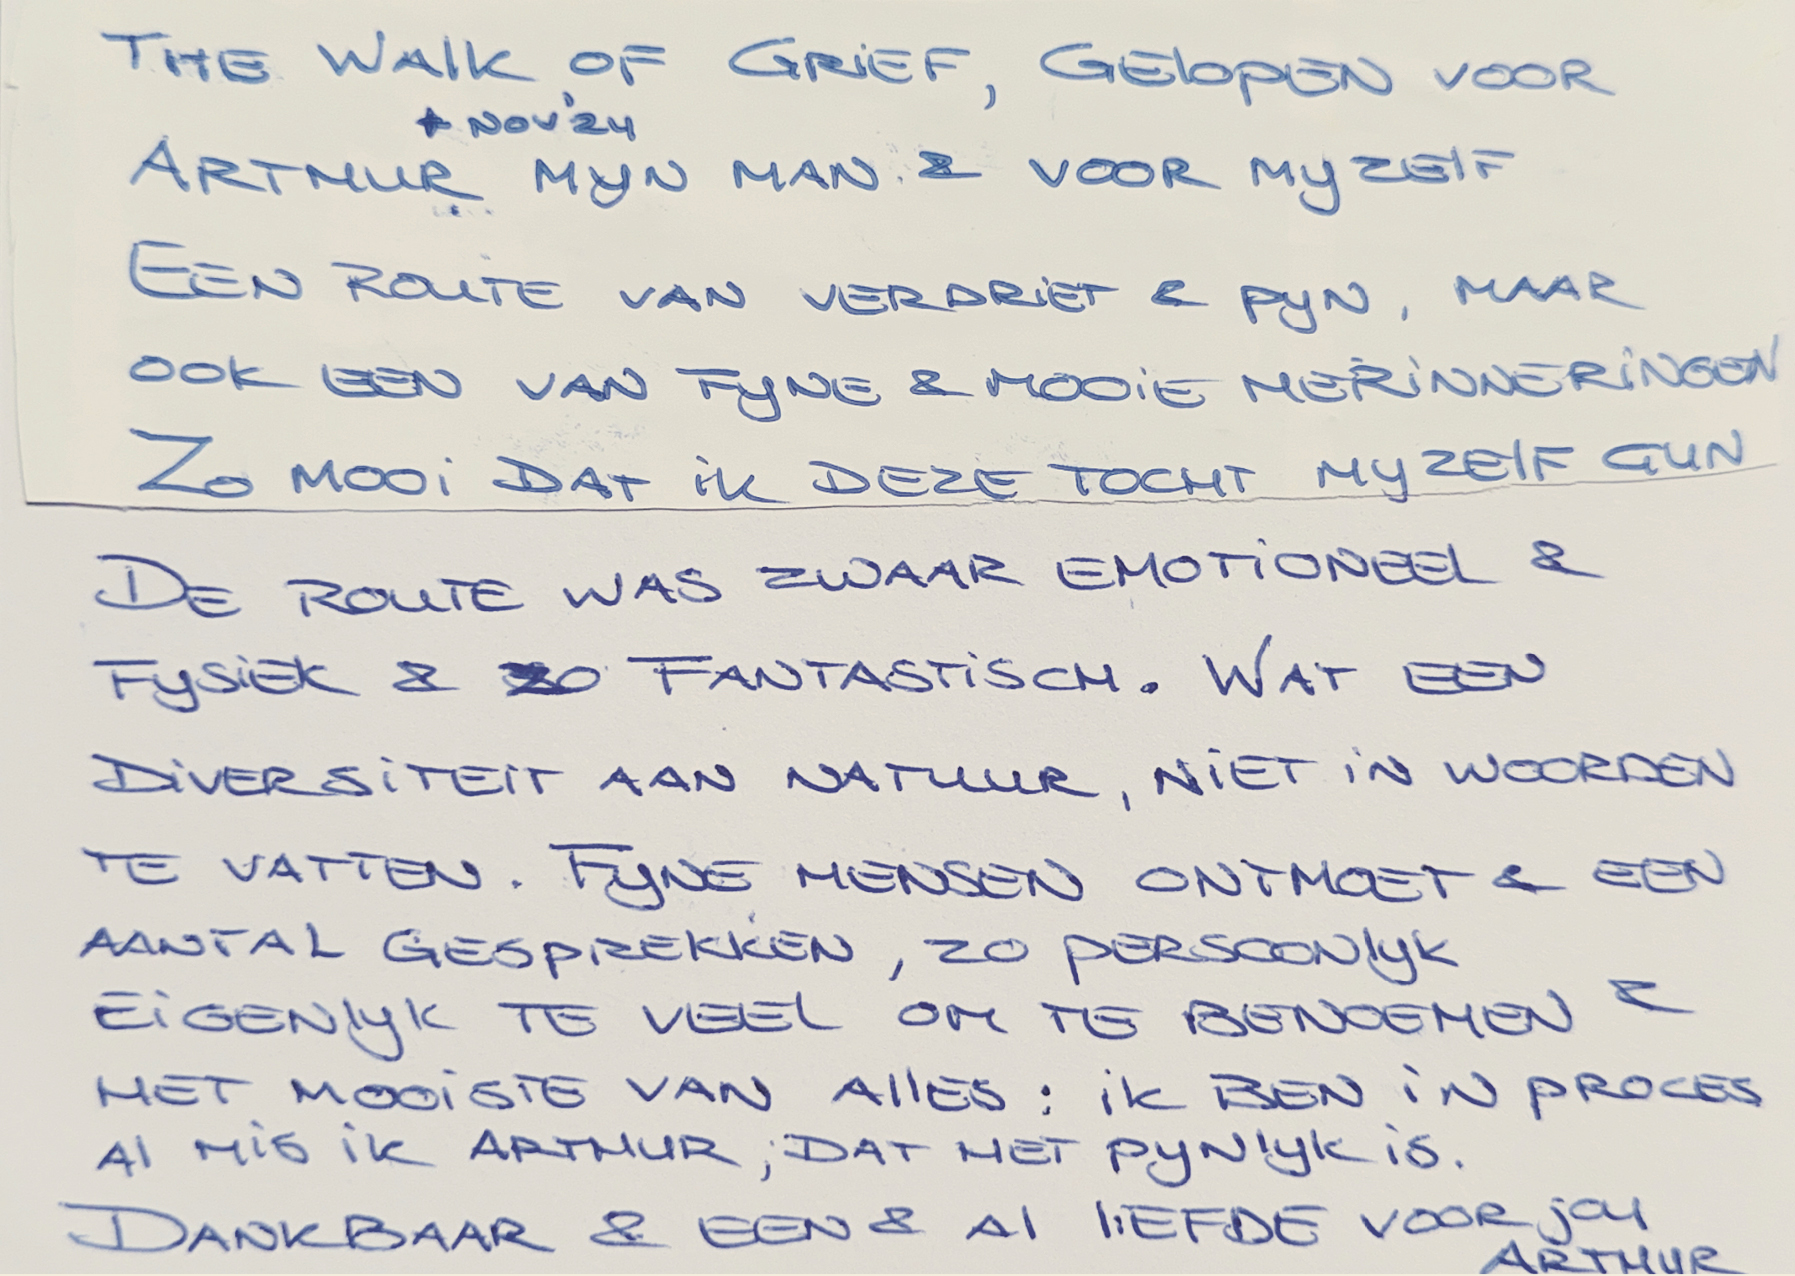 THE WALK OF GRIEF, GELOPEN VOOR
+ NOV '24
ARTHUR MYN MAN & VOOR MYZELF
EEN ROUTE VAN VERDRIET & PYN, MAAR
OOK EEN VAN FYNE & MOOIE HERINNERINGEN
ZO MOOI DAT IK DEZE TOCHT MYZELF GUN
DE ROUTE WAS ZWAAR EMOTIONEEL &
FYSIEK & ZO FANTASTISCH. WAT EEN
DIVERSITEIT AAN NATUUR, NIET IN WOORDEN
TE VATTEN. FYNE MENSEN ONTMOET & EEN
AANTAL GESPREKKEN, ZO PERSOONLYK
EIGENLYK TE VEEL OM TE BENOEMEN &
HET MOOISTE VAN ALLES: IK BEN IN PROCES
AL MIS IK ARTHUR, DAT HET PYNLYK IS.
DANKBAAR & EEN & AL LIEFDE VOOR JOU
ARTHUR